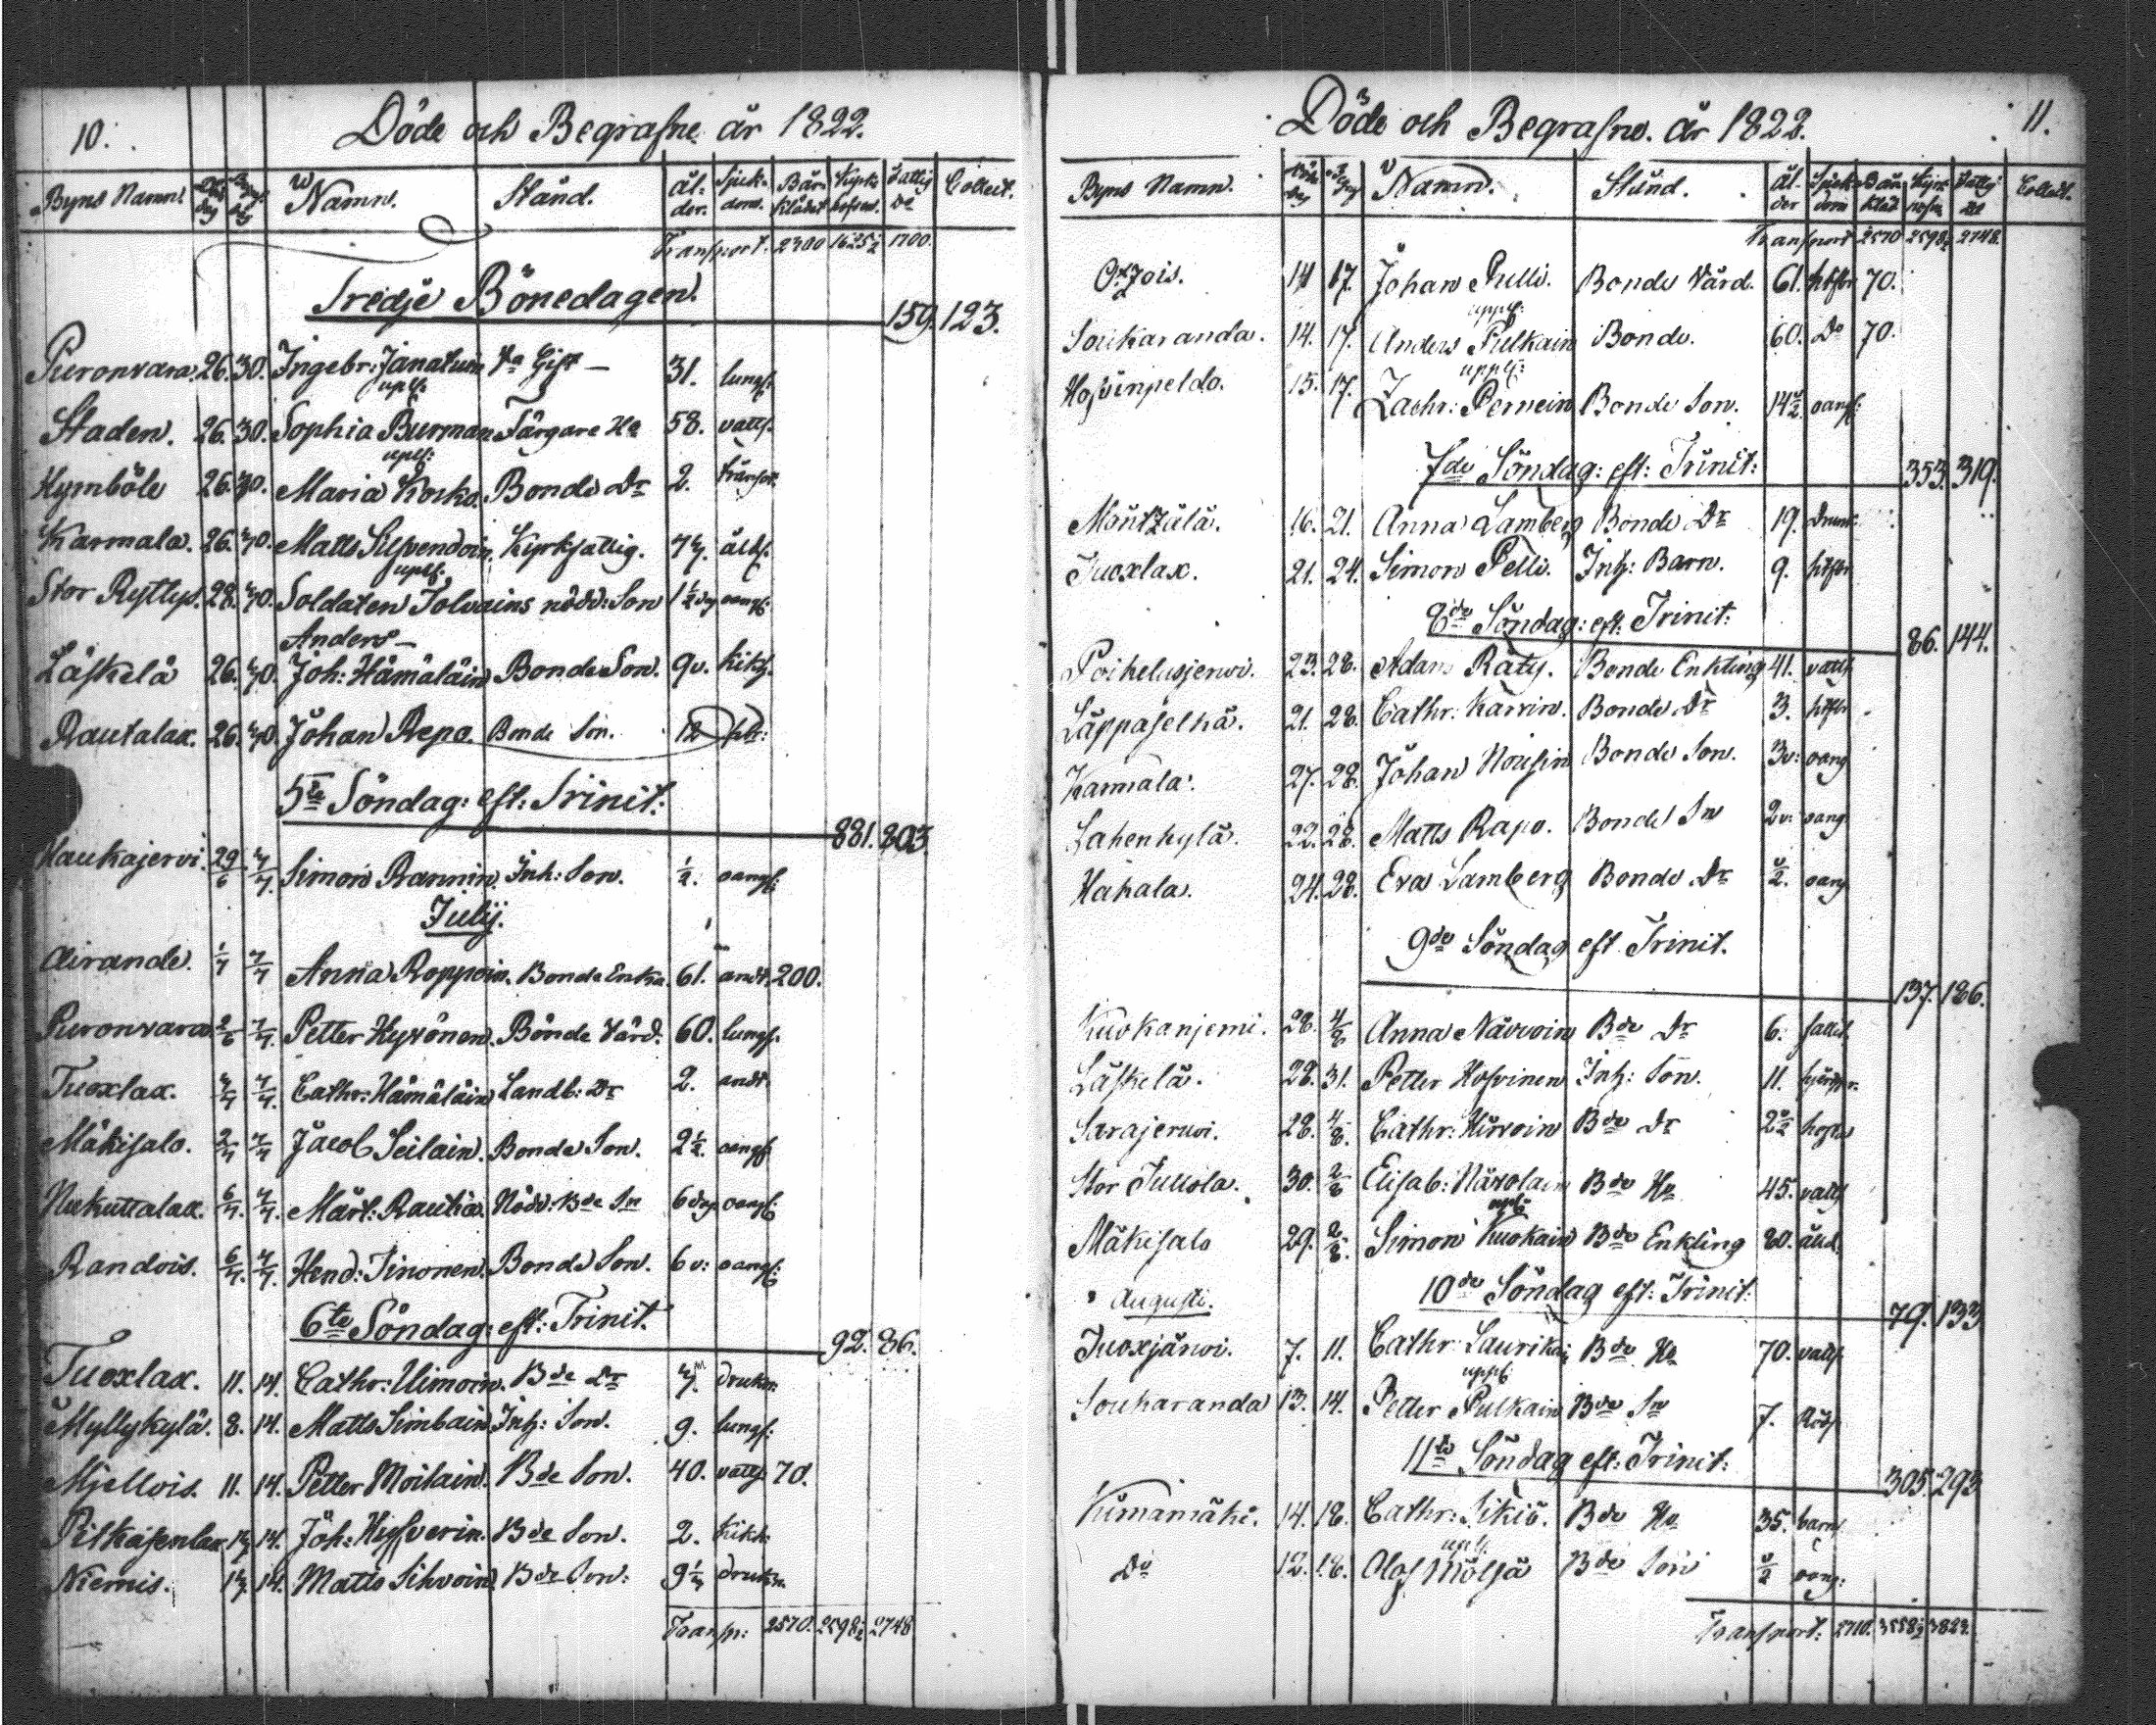 10.
Döde och Begrafne år 1822.
Byns Namn. Namn. Stånd. ål-der. Sjuk-dom. Bår-klädet Kyrk Fattig Collect.
Transport. 2300 1625½ 1700.
Tredje Bönedagen.
159. 123.
Puronvara. 26. 30. Ingebr: Janatuin Gift 31. lungs.
uplf:
Staden. 26. 30. Sophia Burman Färgare Ha 58. vatts.
uplf:
Hymböle 26. 30. Maria Korko. Bonde Dr 2.
Karmala. 26. 30. Matts Silvendoin. Kyrkfattig. 77. åld.
uplf:
Stor Rytlys. 28. 30. Soldaten Tolvains nödd: Son 1½ dag oangf:
Anders
Läskelä 26. 30. Joh: Hämäläin Bonde Son. 9v. kikh.
Rautalax. 26. 30. Johan Repo. Bonde Son. 12
5te Söndag: eft: Trinit:
881. 803.
Haukajervi. 29/6 7/7. Simon Rannin. Inh: Son. ½. oangf:
Julij.
Airande. 1/7 7/7 Anna Roppoin. Bonde Enka. 61. andt. 200.
Puronvara 2/6 7/7. Petter Hyvönen. Bonde Värd. 60. lungs.
Tuoxlax. 4/7 7/7. Cathr: Hämäläin Landb: Dr 2. andt.
Mäkisalo. 2/7 7/7 Jacob Seilain. Bonde Son. 2½. oangf
Nukuttalax. 6/7. 7/7. Märt: Rautia. Nödd: Bde Sn 6 dag oangf:
Randois. 6/7. 7/7. Hend: Tinonen. Bonde Son. 6 v: oangf:
6te Söndag: eft: Trinit.
92. 86.
Tuoxlax. 11. 14. Cathr: Uimoin. Bde Dr 7. drukn.
Myllykylä. 8. 14. Matts Simbain Inh: Son. 9. lungs:
Mjellois. 11. 14. Petter Moilain. Bde Son. 40. vatts 70.
Pitkäsenlax 14. Joh: Hyfverin. Bde Son. 2. kikh:
Niemis. 14. Matts Sihvoin. Bde Son: 9½ drukn.
Transp: 2570. 2598½ 2748
11.
Döde och Begrafne. år 1822.
Byns Namn. Namn. Stånd. ål-der Sjuk-dom Bår-kläd Collect.
Transport 2570 2598½ 2748.
Otsois. 14 17. Johan Pulli. Bonde Värd. 61. hitsfbr 70.
uppf:
Soukaranda. 14. 17. Anders Pulkain Bonde. 60. Do 70.
uppf:
Hofvinpeldo. 15. 17. Zachr: Pernein Bonde Son. oangf:
7de Söndag: eft: Trinit:
353. 319.
Möntzälä. 16. 21. Anna Lamberg Bonde Dr 19.
Tuoxlax. 21. 24. Simon Pelli. Inh: Barn. 9. hitsfbr
8de Söndag: eft: Trinit:
86. 144.
Poikelusjerwi. 23. 28. Adam Räty. Bonde Enkling 41. vatts
Läppäselkä. 21. 28. Cathr: Karvin. Bonde Dr 3. hitsfbr
Karmala. 27. 28. Johan Nousin Bonde Son. 3v: oang
Lahenkylä. 22. 28. Matts Rapo. Bonde Sn 2v: oang
Hakala. 24. 28. Eva Lamberg Bonde Dr oang
9de Söndag eft Trinit.
137. 186.
Kuokanjemi. 28. 4/8 Anna Nävvoin Bde Dr 6.
Läskelä. 28. 31. Petter Hofvinen Inh: Son. 11.
Sarajerwi. 28. 4/8. Cathr: Hirvoin Bde Dr
Stor Jullola. 30. 2/8 Elisab: Närolain Bde Hu 45. vatts
uplf
Mäkisalo 29. 2/8. Simon Kuokain Bde Enkling 80. åld.
10de Söndag eft: Trinit:
Augusti.
79. 133
Tuoxjärwi. 7. 11. Cathr: Laurikai Bde Ha 70. vatts.
uppf
Soukaranda 13. 14. Petter Pulkain Bde Sn 7. Röds.
11te Söndag eft: Trinit:
305. 293
Kumamäki. 14. 18. Cathr: Sikiö. Bde Hu 35. barns
uplf.
Do 12. 18. Olof Mölsä Bde Son oang:
Transport: 2710. 3558½ 3823.